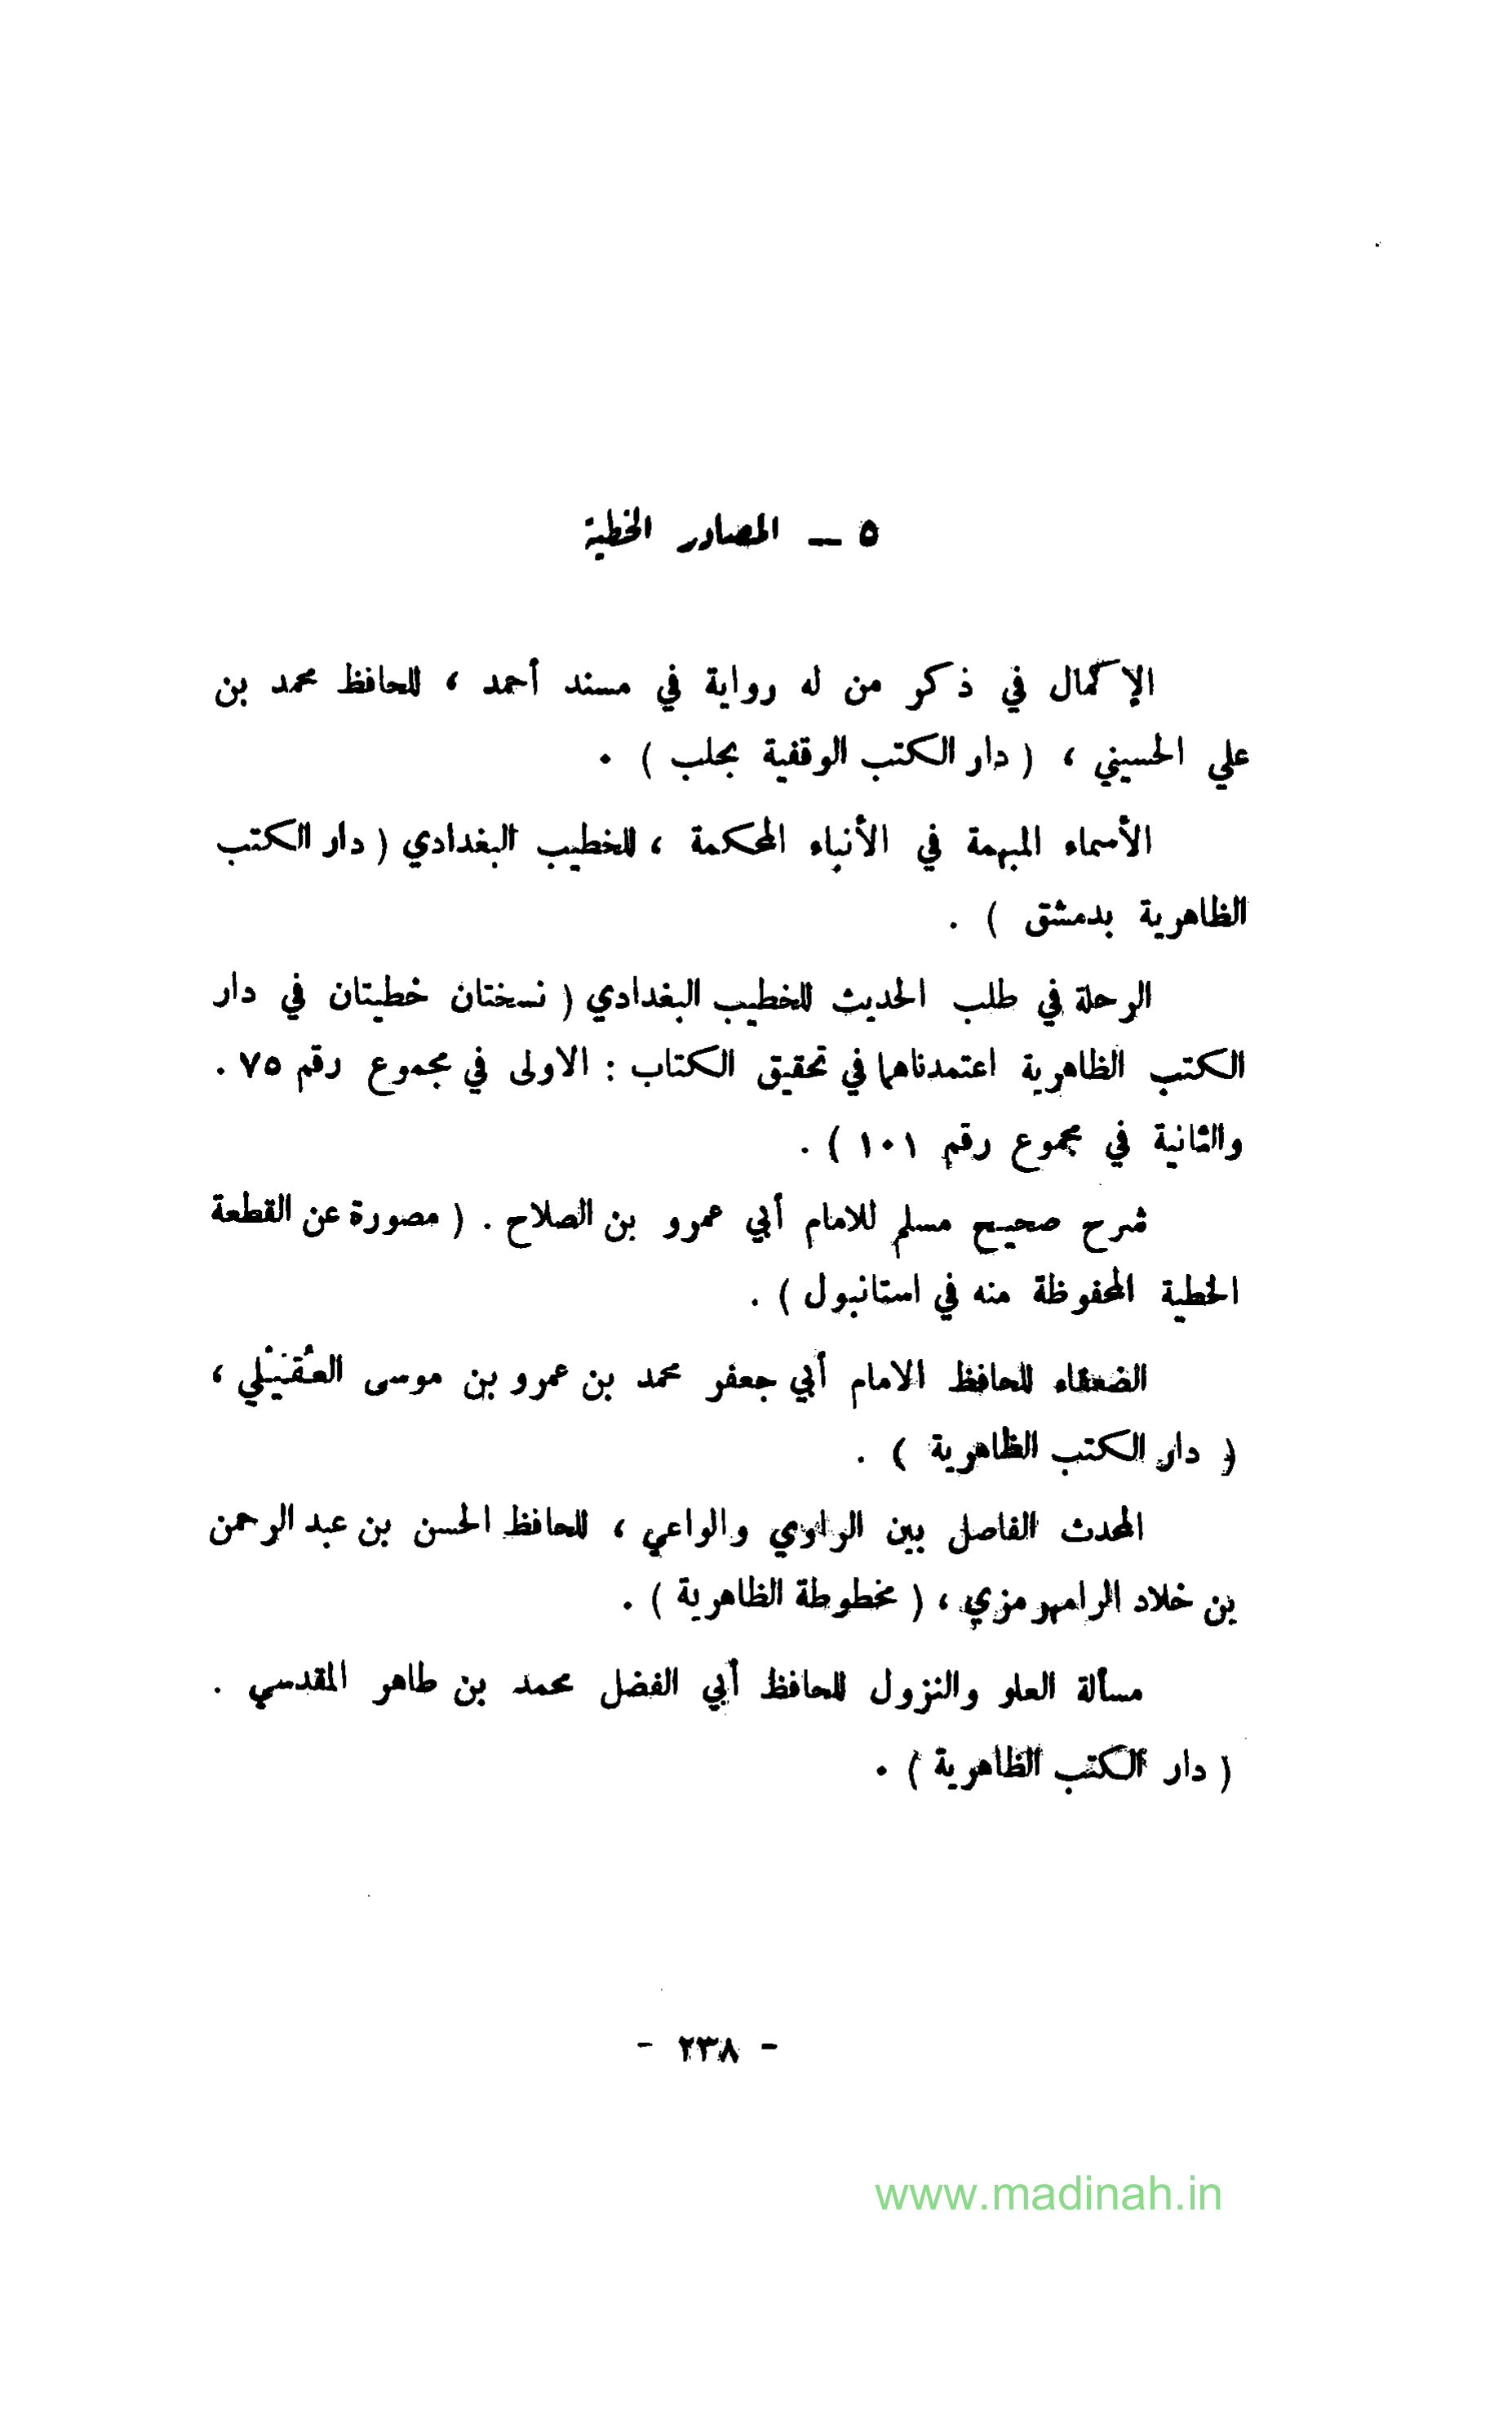 ٥ — المصادر الخطية
الإكمال في ذكر من له رواية في مسند أحمد ، للحافظ محمد بن
علي الحسيني ، ( دار الكتب الوقفية بحلب ) .
الأسماء المبهمة في الأنباء المحكمة ، للخطيب البغدادي ( دار الكتب
الظاهرية بدمشق ) .
الرحلة في طلب الحديث للخطيب البغدادي ( نسختان خطيتان في دار
الكتب الظاهرية اعتمدناهما في تحقيق الكتاب : الاولى في مجموع رقم ٧٥ .
والثانية في مجموع رقم ١٠١ ) .
شرح صحيح مسلم للامام أبي عمرو بن الصلاح . ( مصورة عن القطعة
الخطية المحفوظة منه في استانبول ) .
الضعفاء للحافظ الامام أبي جعفر محمد بن عمرو بن موسى العُقَيْلي ،
( دار الكتب الظاهرية ) .
المحدث الفاصل بين الراوي والواعي ، للحافظ الحسن بن عبد الرحمن
بن خلاد الرامهرمزي ، ( مخطوطة الظاهرية ) .
مسألة العلو والنزول للحافظ أبي الفضل محمد بن طاهر المقدسي .
( دار الكتب الظاهرية ) .
- ٢٣٨ -
www.madinah.in